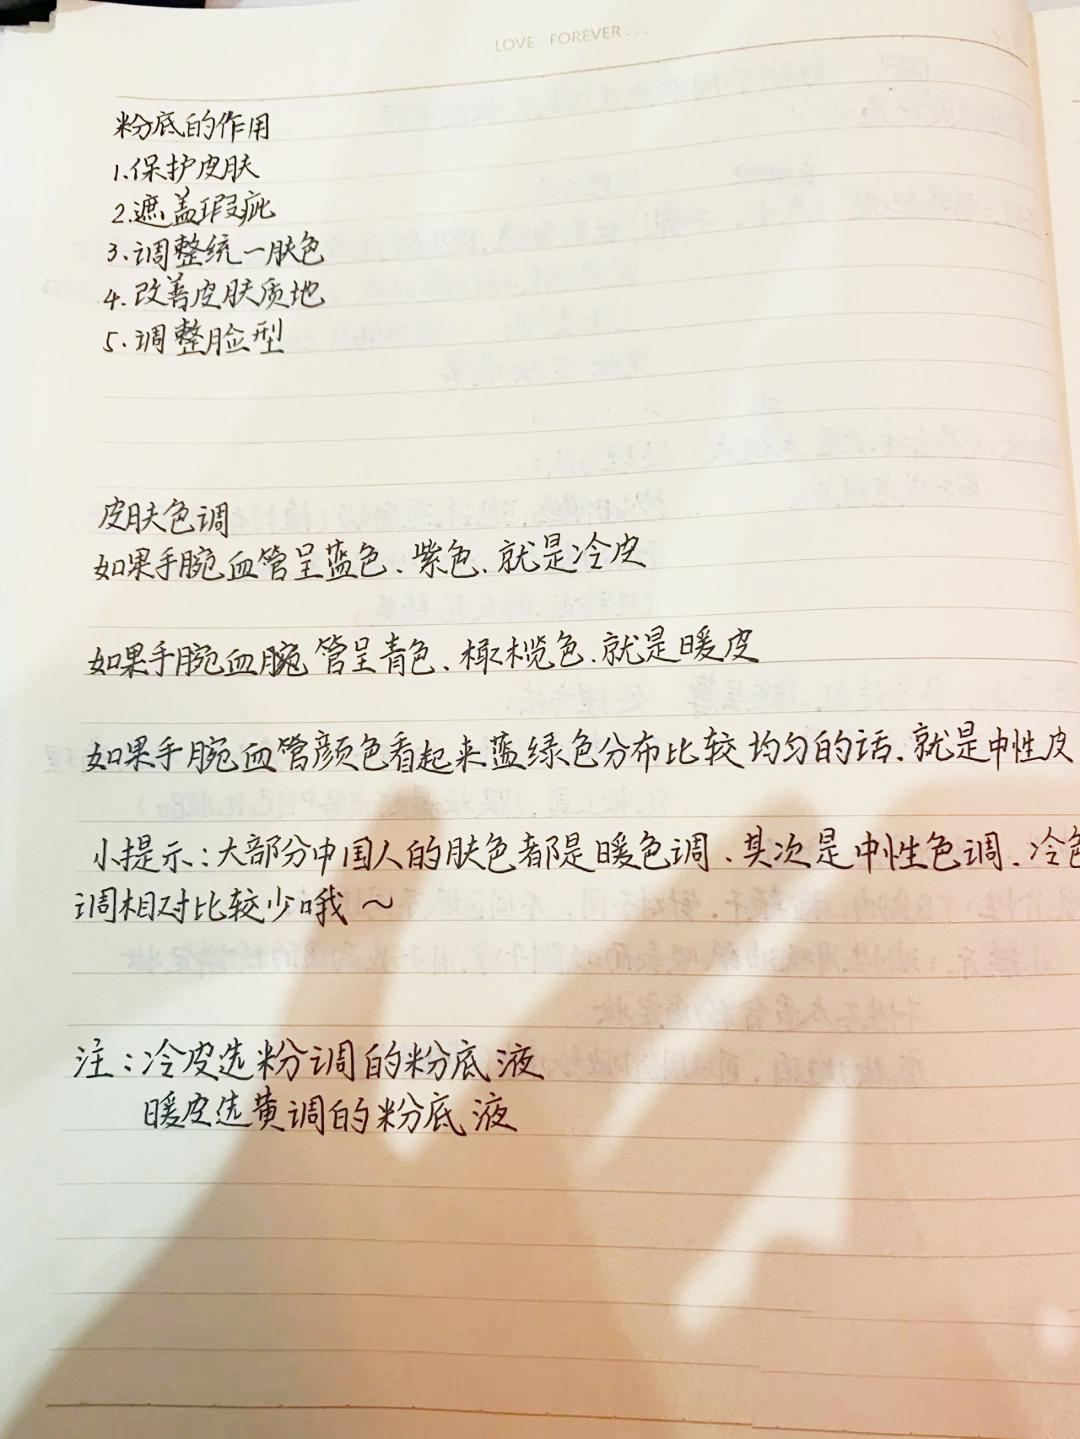 LOVE FOREVER...
粉底的作用
1.保护皮肤
2.遮盖瑕疵
3.调整统一肤色
4.改善皮肤质地
5.调整脸型
皮肤色调
如果手腕血管呈蓝色、紫色、就是冷皮
如果手腕血腕管呈青色、橄榄色、就是暖皮
如果手腕血管颜色看起来蓝绿色分布比较均匀的话、就是中性皮
小提示：大部分中国人的肤色都是暖色调、其次是中性色调、冷色
调相对比较少哦～
注：冷皮选粉调的粉底液
暖皮选黄调的粉底液